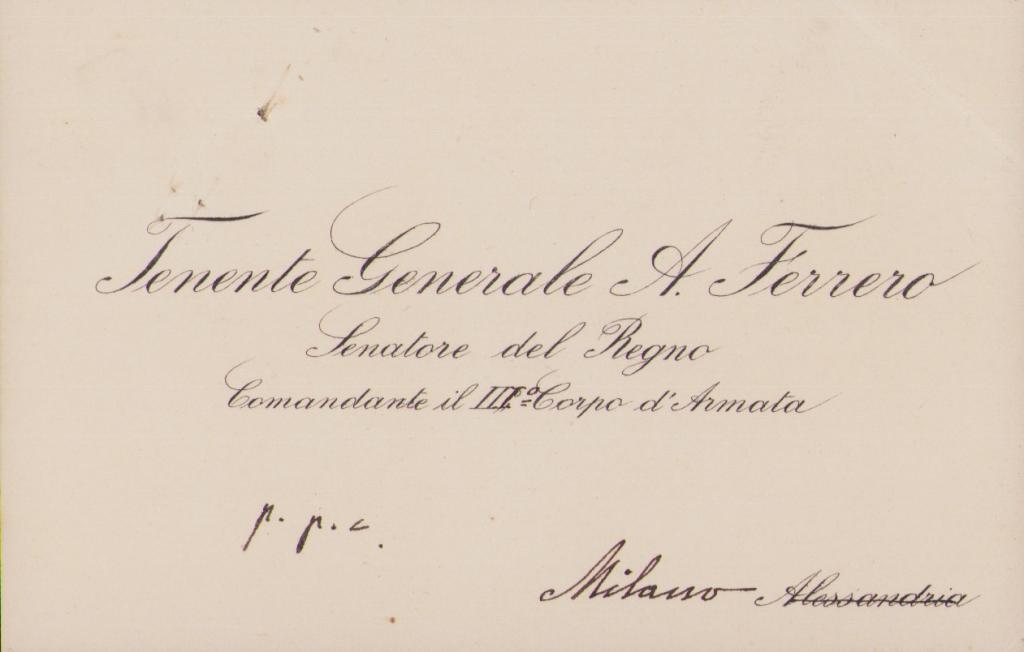 Tenente Generale A. Ferrero
Senatore del Regno
Comandante il III.º Corpo d'Armata
p. p. c.
Milano Alessandria